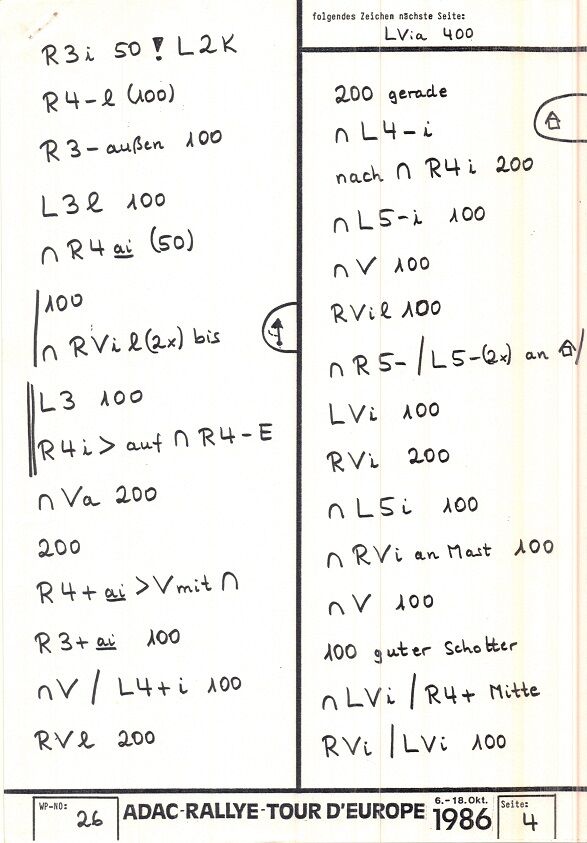 R3i 50 ! L2K
R4-l (100)
R3-außen 100
L3l 100
∩ R4 ai (50)
100
∩ RVil(2x) bis
L3 100
R4i > auf ∩ R4-E
∩ Va 200
200
R4+ ai > V mit ∩
R3+ ai 100
∩V / L4+i 100
RVl 200
folgendes Zeichen nächste Seite:
LVia 400
200 gerade
∩ L4-i
nach ∩ R4i 200
∩ L5-i 100
∩ V 100
RVil 100
∩ R5-/L5-(2x) an /
LVi 100
RVi 200
∩ L5i 100
∩ RVi an Mast 100
∩ V 100
100 guter Schotter
∩ LVi / R4+ Mitte
RVi / LVi 100
WP-NO: 26
ADAC-RALLYE-TOUR D'EUROPE
6.-18. Okt. 1986
Seite: 4